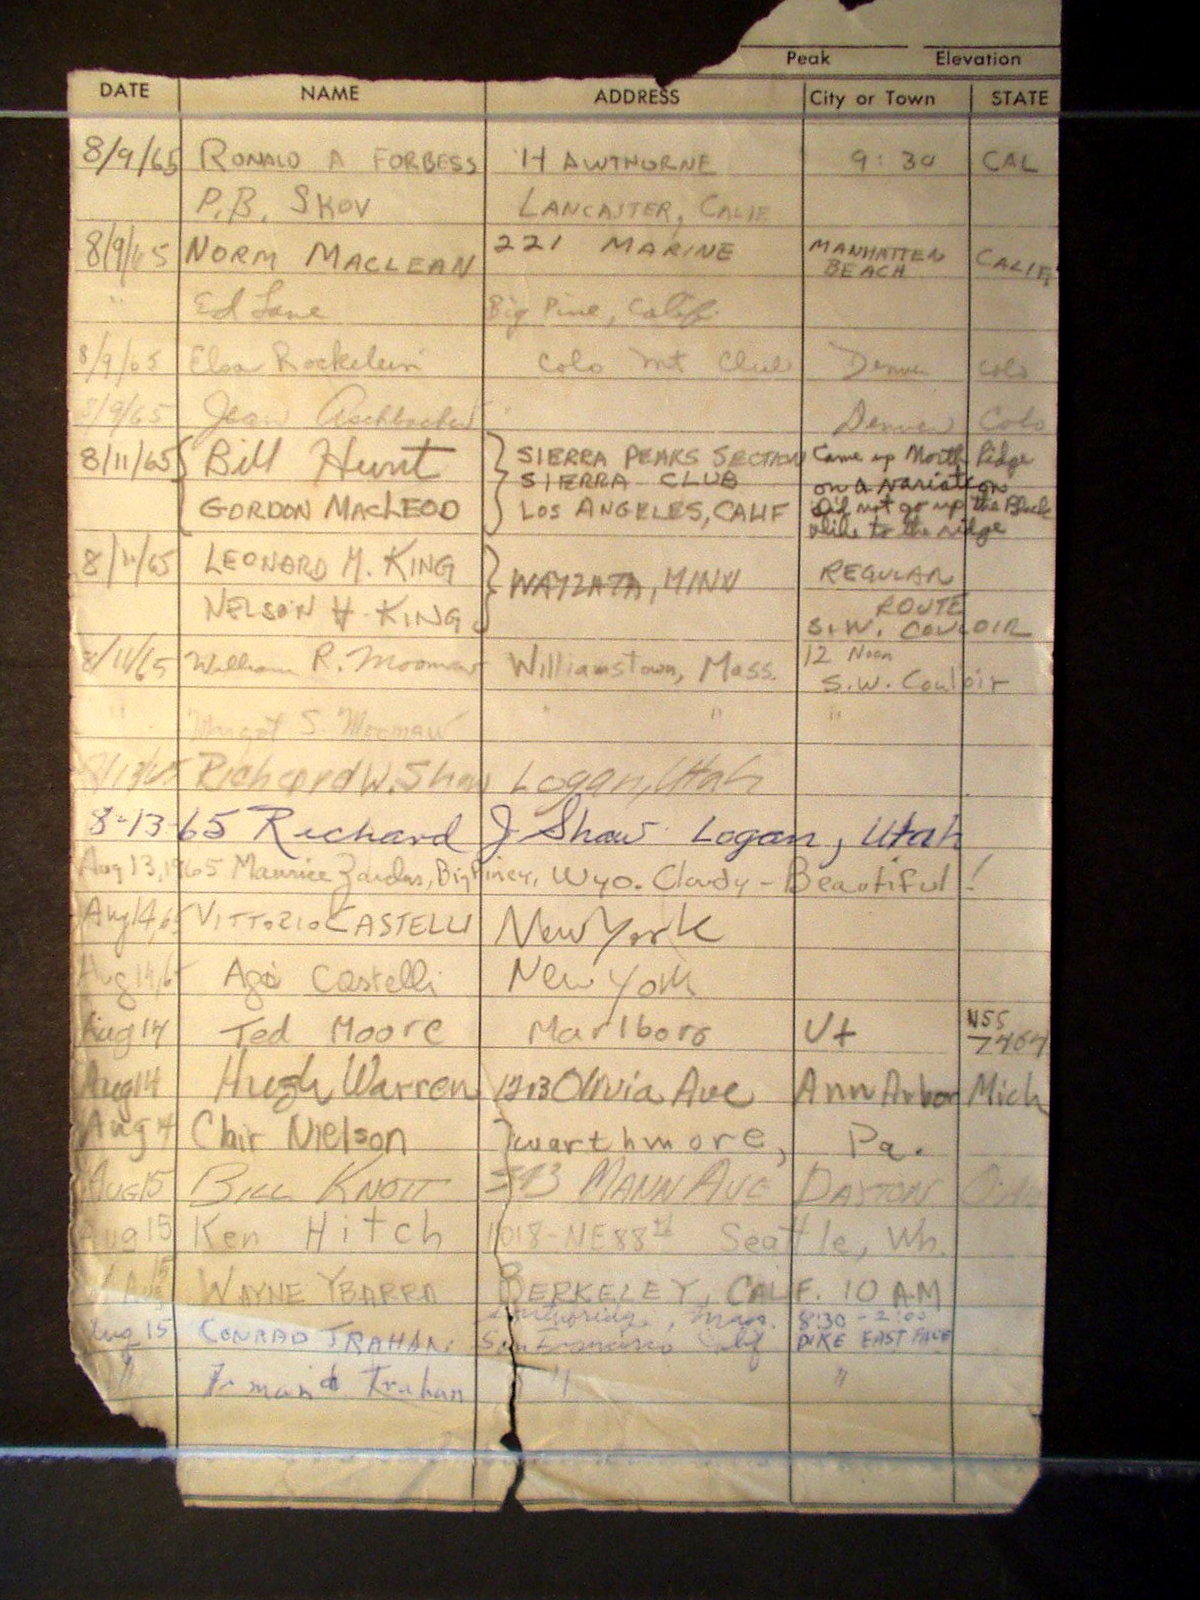 Peak Elevation
DATE NAME ADDRESS City or Town STATE
8/9/65 RONALD A FORBESS HAWTHORNE 9:30 CAL
P.B. SKOV LANCASTER, CALIF
8/9/65 NORM MACLEAN 221 MARINE MANHATTEN BEACH CALIF
" Ed Lane Big Pine, Calif.
8/9/65 Elsa Colo Mt Club Denver Colo
8/9/65 Jean Denver Colo
8/11/65 Bill Hunt SIERRA PEAKS SECTION Came up North Ridge
SIERRA CLUB on a variation
GORDON MACLEOD LOS ANGELES, CALIF Did not go up the Black
dike to the ridge
8/11/65 LEONARD M. KING WAYZATA, MINN REGULAR
NELSON H. KING ROUTE
S.W. COULOIR
8/11/65 William R. Moomaw Williamstown, Mass. 12 Noon
S.W. Couloir
" Margot S. Moomaw " " "
8/13/65 Richard W. Shaw Logan, Utah
8-13-65 Richard J Shaw Logan, Utah
Aug 13, 1965 Maurice Big Piney, Wyo. Cloudy - Beautiful!
Aug 14, 65 VITTORIO CASTELLI New York
Aug 14, 65 Castelli New York
Aug 14 Ted Moore Marlboro Vt NSS
7404
Aug 14 Hugh Warren 1213 Olivia Ave Ann Arbor Mich
Aug 14 Clair Nielson Swarthmore, Pa.
Aug 15 BILL KNOTT MANN AVE DAYTON
Aug 15 Ken Hitch 1018-NE 88th Seattle, Wh.
WAYNE YBARRA BERKELEY, CALIF. 10 AM
8:30 - 2:00
Aug 15 CONRAD TRAHAN. San Francisco Calif DIKE EAST FACE
" Trahan " "